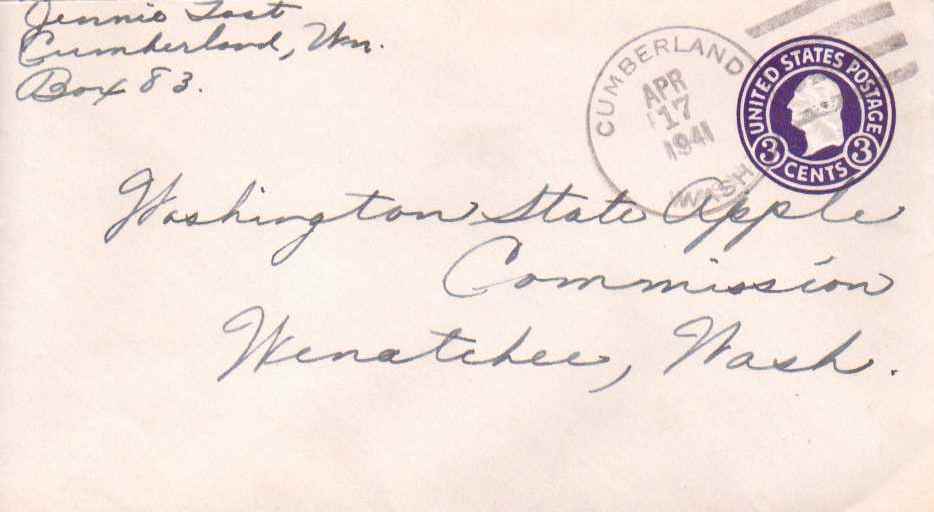 Jennie Tost
Cumberland, Wn.
Box 83.
CUMBERLAND
APR
17
1941
WASH
UNITED STATES POSTAGE
3 CENTS 3
Washington State Apple
Commission
Wenatchee, Wash.